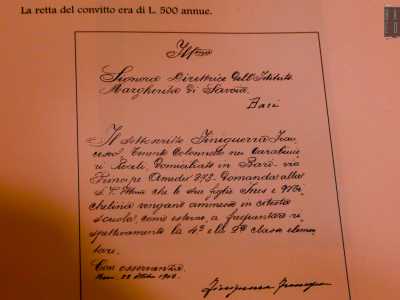 La retta del convitto era di L. 500 annue.
Ill.ma
Signora Direttrice dell'Istituto
Margherita di Savoia
Bari
Il sottoscritto Finiguerra Fran
cesco Tenente Colonnello nei Carabinie
ri Reali, domiciliato in Bari via
Principe Amedeo 272. Domanda alla
S. V. Ill.ma che le sue figlie Ines e Mi
chelina vengano ammesse in cotesta
scuola, come esterne, a frequentare ri
spettivamente la 4ª e la 2ª classe elemen
tare.
Con osservanza.
Bari 1908.
Finiguerra